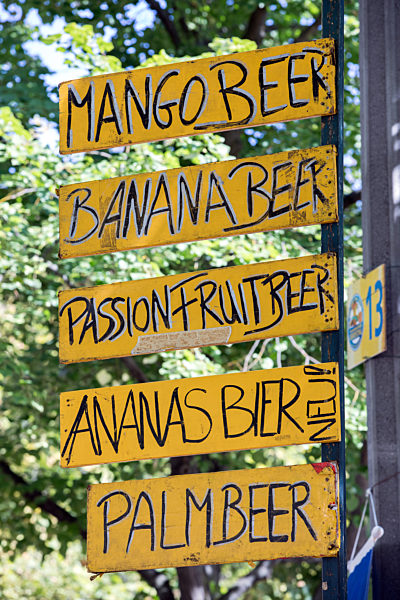 MANGO BEER
BANANA BEER
PASSIONFRUITBEER
ANANAS BIER NEU!
PALMBEER
13